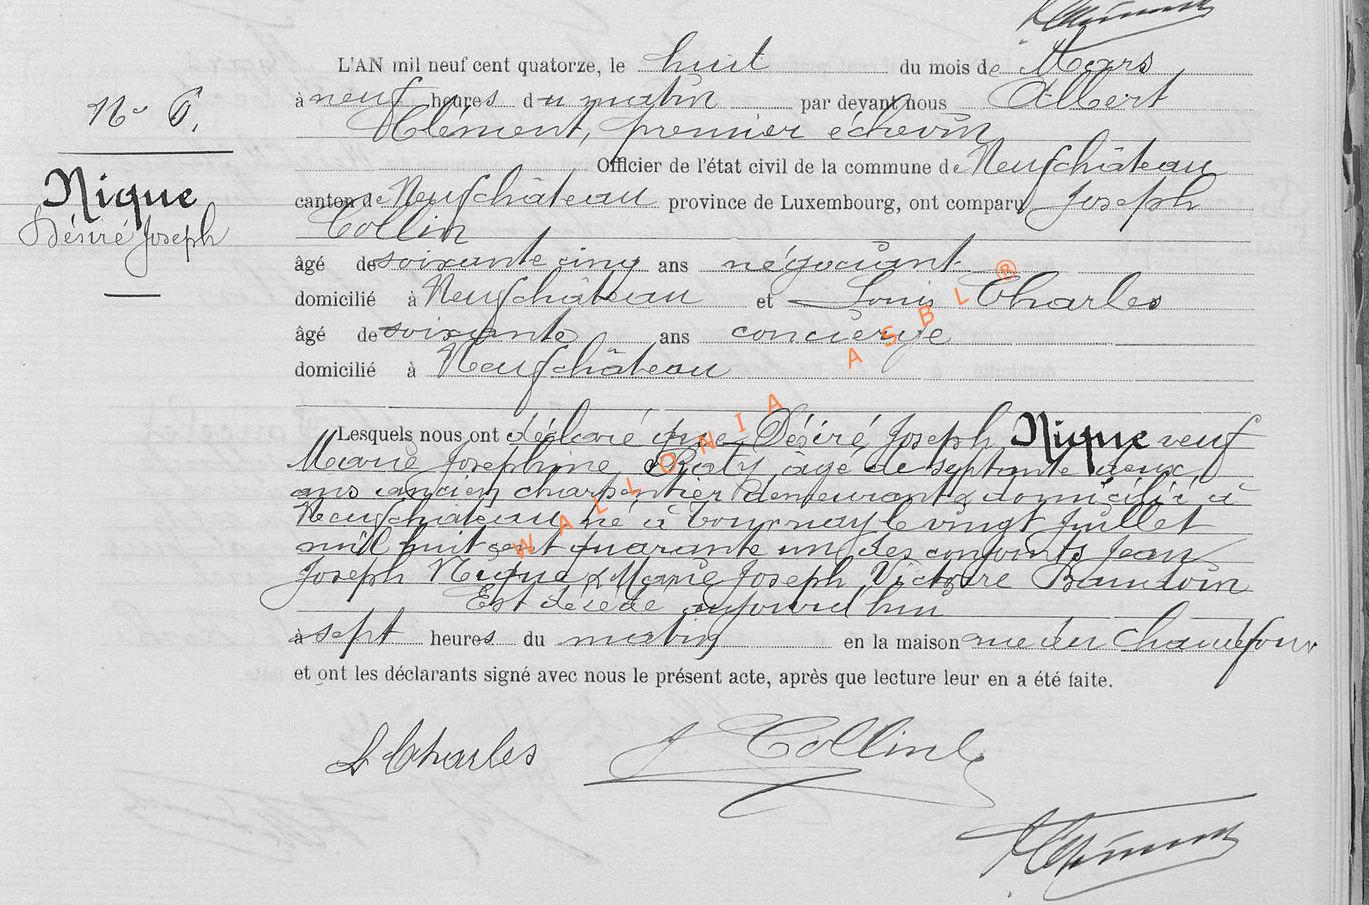 L'AN mil neuf cent quatorze, le huit du mois de Mars
à neuf heures du matin par devant nous Albert
Clément, premier échevin
Officier de l'état civil de la commune de Neufchâteau
canton de Neufchâteau province de Luxembourg, ont comparu Joseph
Collin
âgé de soixante cinq ans négociant
domicilié à Neufchâteau et Louis Charles
âgé de soixante ans concierge
domicilié à Neufchâteau
No 6.
Nique
Désiré Joseph
Lesquels nous ont déclaré que Désiré Joseph Nique veuf
Marie Josephine âgé de septante deux
ans ancien charpentier demeurant & domicilié à
Neufchâteau, né à Tournay le vingt Juillet
mil huit cent quarante un, des conjoints Jean
Joseph Nique & Marie Joseph Victoire Baudoin
Est décédé aujourd'hui
à sept heures du matin en la maison rue du Chaudfour
et ont les déclarants signé avec nous le présent acte, après que lecture leur en a été faite.
L Charles J Collin
AClément
WALLONIA ASBL ®